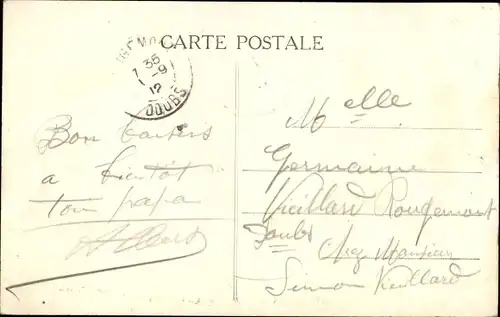 CARTE POSTALE
7 35
1 -9
12
DOUBS
Bon baisers
a bientôt
ton papa
Melle
Germaine
Vieillard Rougemont
Doubs
Chez Monsieur
Simon Vieillard